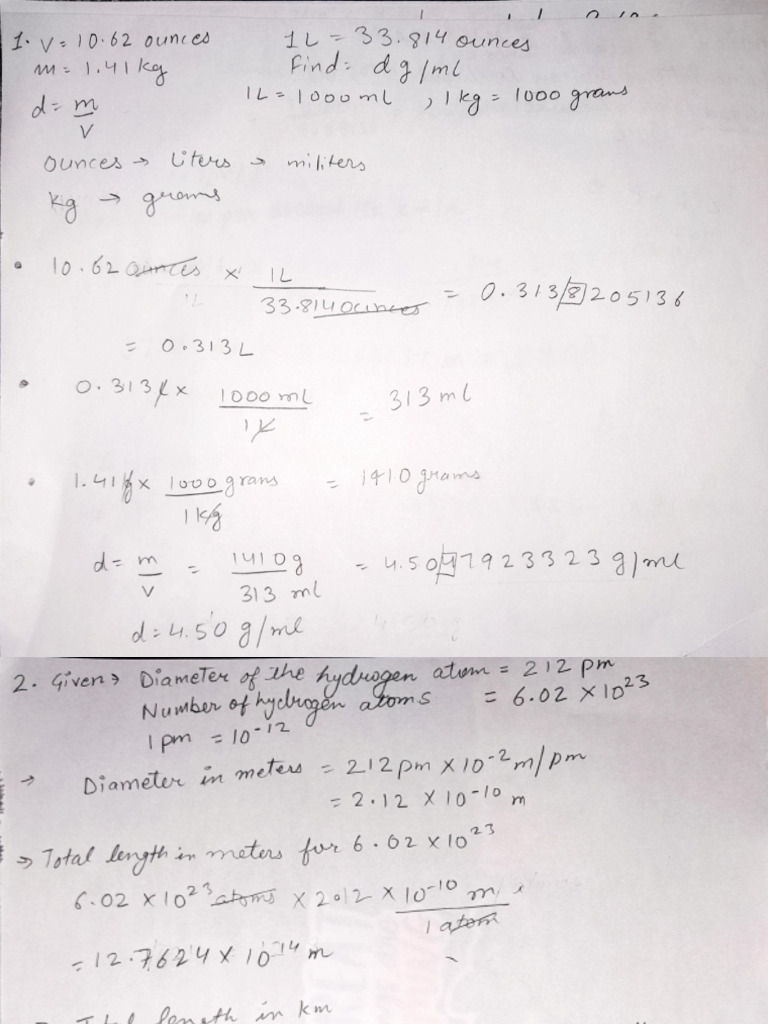 1. V = 10.62 ounces 1L = 33.814 ounces
m = 1.41 kg Find: d g/ml
d = m/V 1L = 1000 ml , 1 kg = 1000 grams
ounces → liters → militers
kg → grams
• 10.62 ounces × 1L/33.814 ounces = 0.313/8205136
= 0.313 L
• 0.313 L × 1000 ml/1L = 313 ml
• 1.41 kg × 1000 grans/1 kg = 1410 grams
d = m/V = 1410 g/313 ml = 4.5047923323 g/ml
d = 4.50 g/ml
2. Given → Diameter of the hydrogen atom = 212 pm
Number of hydrogen atoms = 6.02 × 10^23
1 pm = 10^-12
→ Diameter in meters = 212 pm × 10^-2 m/pm
= 2.12 × 10^-10 m
⇒ Total length in meters for 6.02 × 10^23
6.02 × 10^23 atoms × 2.12 × 10^-10 m/1 atom
= 12.7624 × 10^14 m
Total length in km